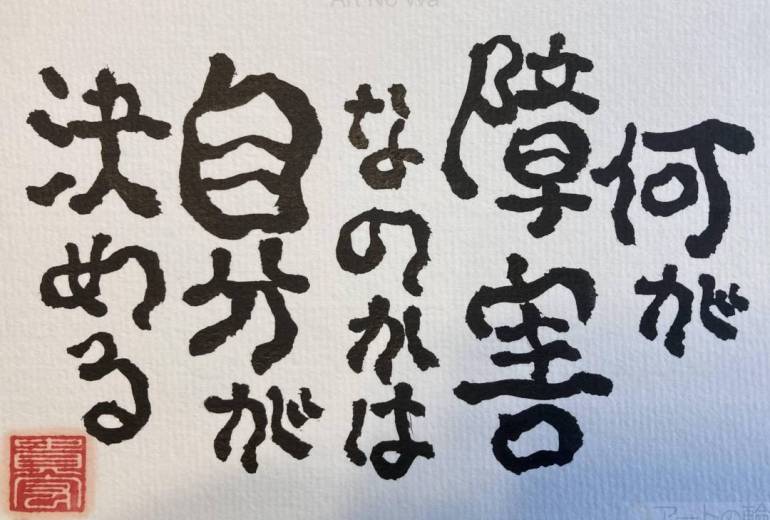 何が
障害
なのかは
自分が
決める
Art No Wa
アートの輪